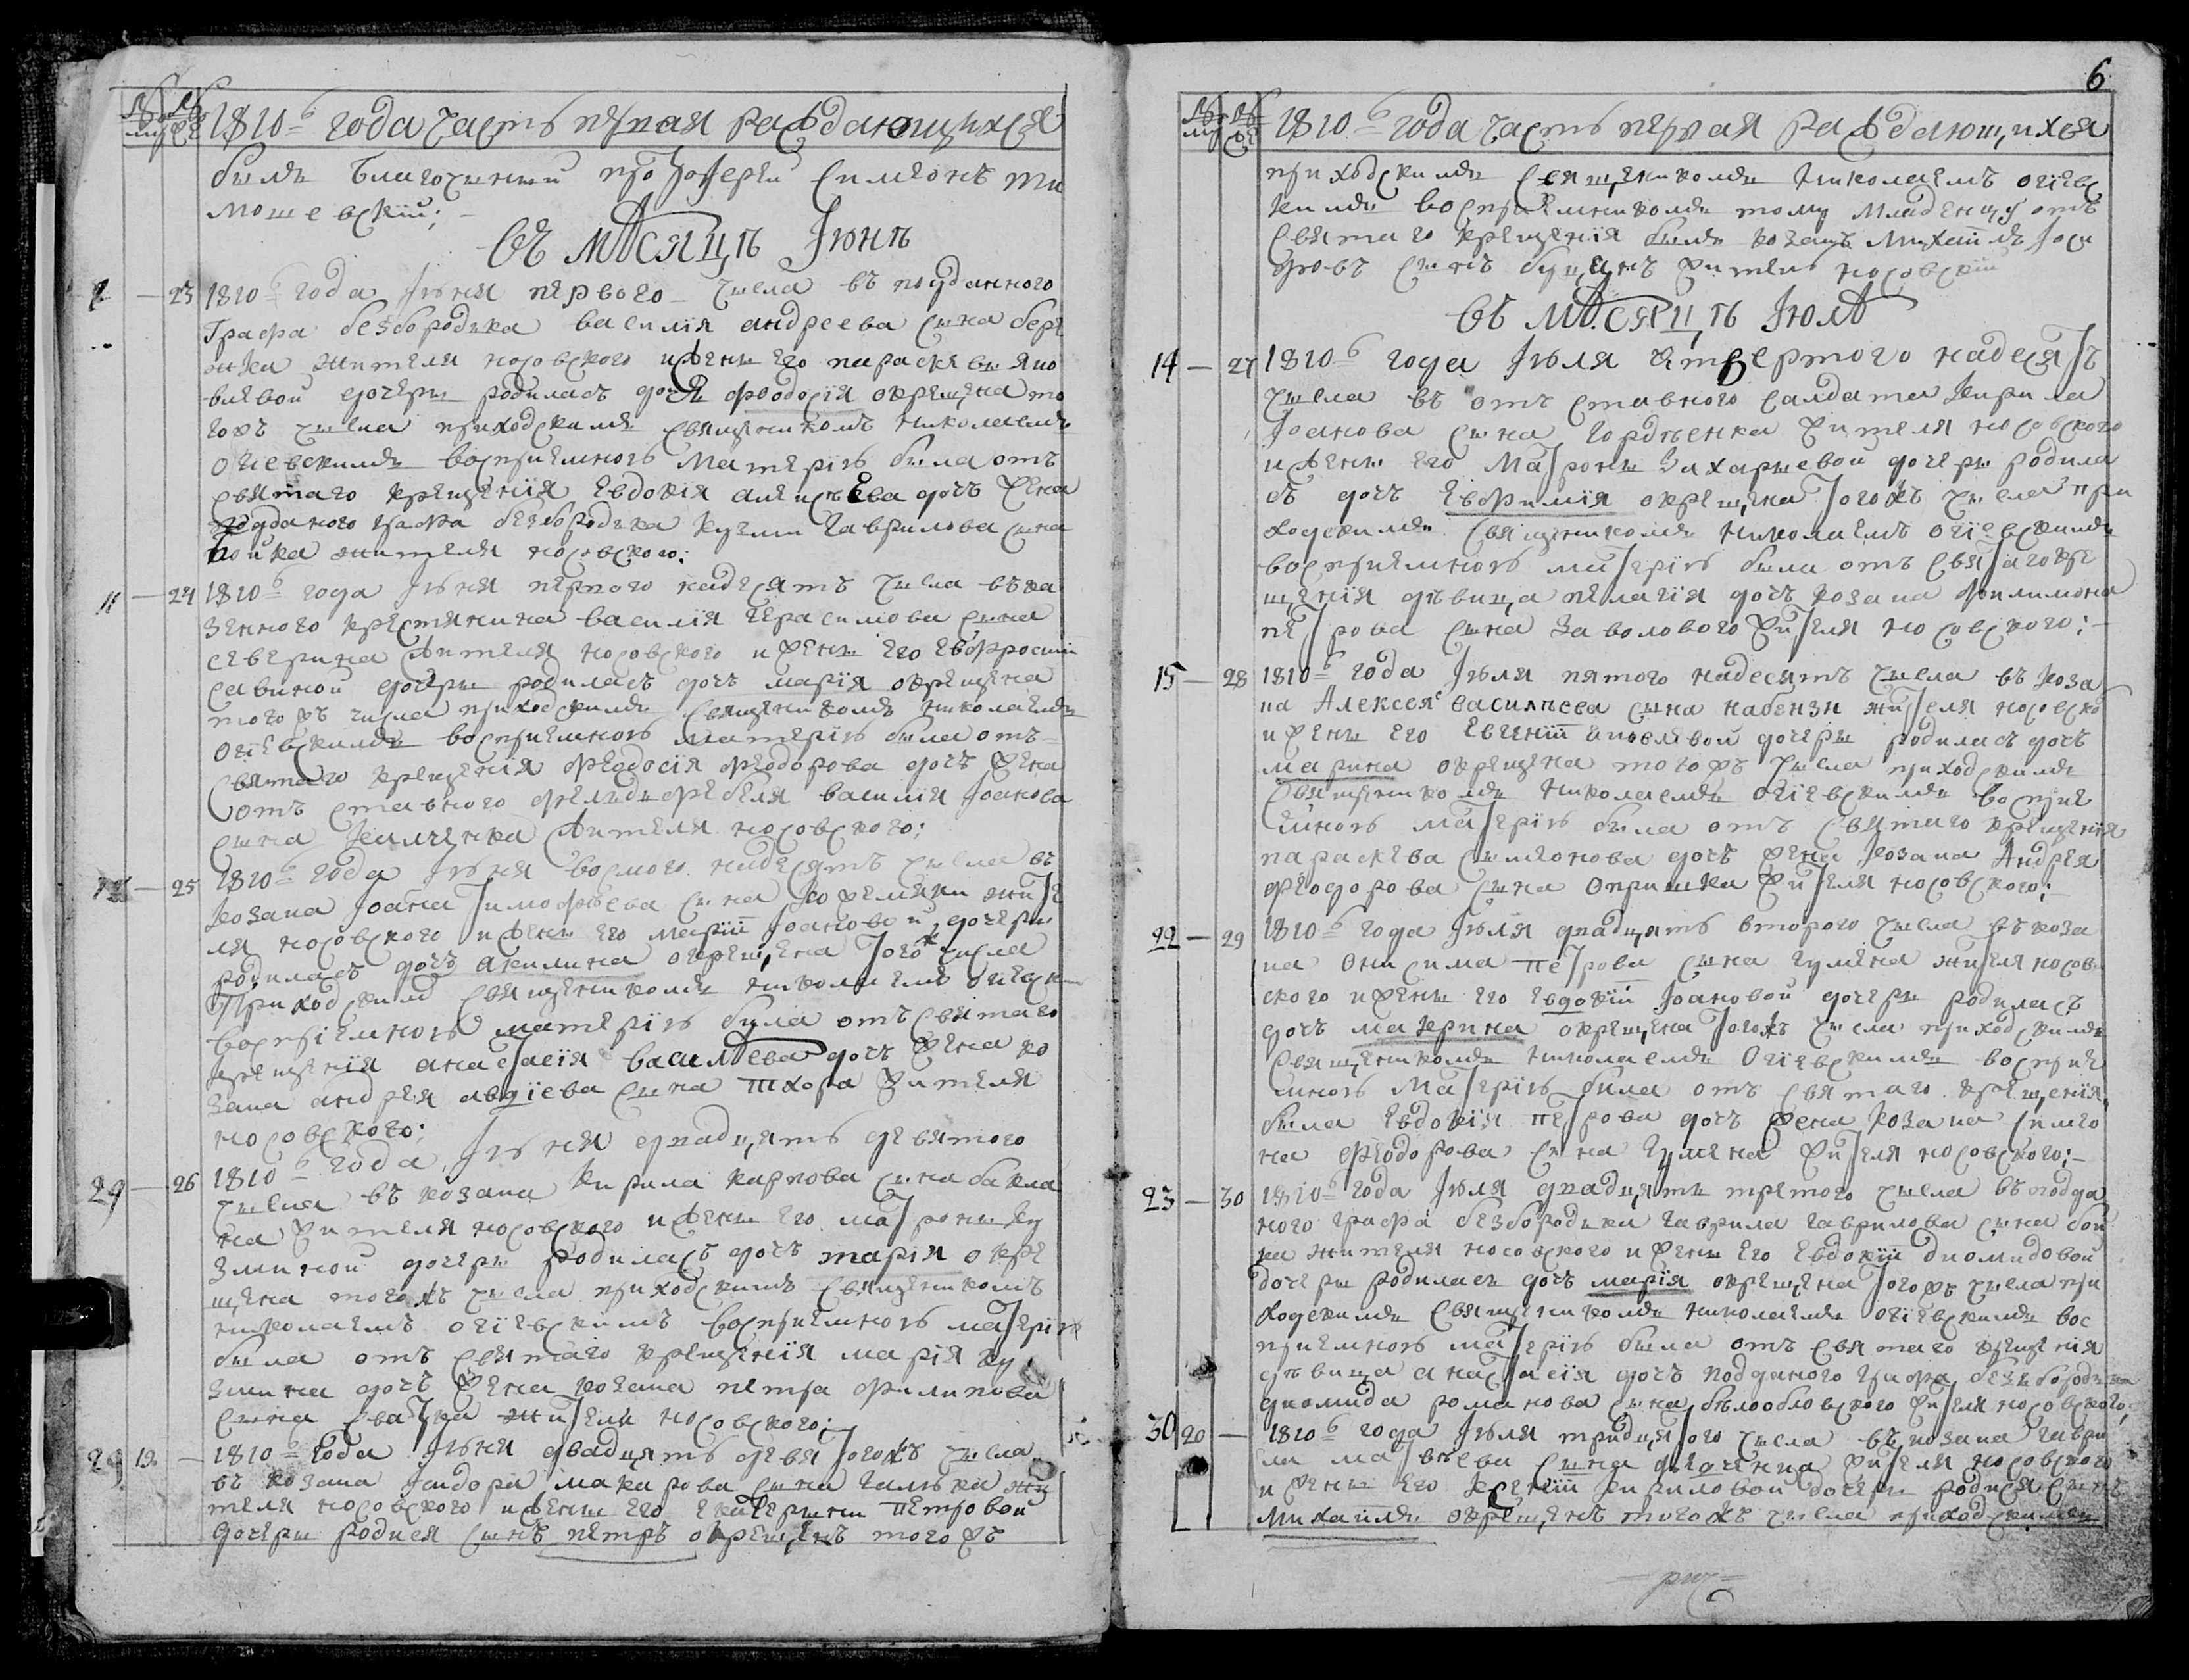 1810 года часть первая раждающихся
былъ Благочинный протоиерей Симеонъ ти
мошевскій;
въ мѣсяцѣ Іюнѣ
1 — 23 1810 года Іюня первого числа въ подданного
Графа безбородка василія андреева сына бере
жителя носовского и жены его параскевы яко
влевой дочери родилась дочь феодосія окрещена то
гожъ числа приходскимъ священникомъ николаемъ
огіевскимъ восприемною материю была отъ
святаго крещенія Евдокія алексѣева дочь жена
подданого графа безбородка кузми гаврилова сына
бойка жителя носовского:
11 — 24 1810 года Іюня первого надесять числа въ ка
зенного крестянина василія герасимова сына
северина жителя носовского и жены его евфросиніи
савиной дочери родилась дочь марія окрещена
тогожъ числа приходскимъ священникомъ николаемъ
огіевскимъ восприемною материю была отъ
святаго крещенія феодосія феодорова дочь жена
отъ ставного василія Іоанова
сына жителя носовского;
18 — 25 1810 года Іюня восмого надесять числа въ
козака Іоана Тимофѣева сына жите
ля носовского и жены его маріи Іоановой дочери
родилась дочь акилина окрещена того ж числа
Приходскимъ священникомъ николаемъ огіевск
восприемною материю была отъ святаго
крещенія анастасія василѣева дочь жена ко
зака андрея авдіева сына тхора жителя
носовского;
29 — 26 1810 года Іюня двадцять девятого
числа въ козака кирила карпова сына бакла
на жителя носовского и жены его матроны ку
зминой дочери родилась дочь марія окре
щена тогожъ числа приходскимъ священникомъ
николаемъ огіевскимъ восприемною материю
была отъ святаго крещенія марія ку
змина дочь жена козака петра филипова
сына жителя носовского;
29 19 — 1810 года Іюня двадцять девятогожъ числа
въ козака Ісидора макарова сына галки жи
теля носовского и жены его екатерины Петровой
дочери родися сынъ петръ окрещенъ того жъ
6
1810 года часть первая раждающихся
приходскимъ священникомъ николаемъ огіевс
кимъ восприемникомъ тому младенцу отъ
святаго крещенія былъ козакъ михаилъ Іоси
фовъ сынъ житель носовскій
въ мѣсяцѣ Іюлѣ
14 — 27 1810 года Іюля четвертого надесять
числа въ отъ ставного салдата кирила
Іоанова сына гордѣенка жителя носовского
и жены его матроны захариевой дочери родила
сь дочь евфимія окрещена тогожъ числа при
ходскимъ священникомъ николаемъ огіевскимъ
восприемною материю была отъ святаго кре
щенія дѣвица пелагія дочь козака филимона
петрова сына заволового жителя носовского:
15 — 28 1810 года Іюля пятого надесять числа въ коза
ка Алексея васильева сына кабензи жителя носовско
и жены его Евгеніи яковлевой дочери родилась дочь
марина окрещена тогожъ числа приходскимъ
священникомъ николаемъ огіевскимъ восприе
мною материю была отъ святаго крещенія
параскева симеонова дочь жена козака Андрея
феодорова сына опришка жителя носовского;
22 — 29 1810 года Іюля двадцять второго числа въ коза
ка онисима петрова сына гумена жителя носов
ского и жены его евдокіи Іоановой дочери родилась
дочь макрина окрещена тогожъ числа приходскимъ
священникомъ николаемъ огіевскимъ восприе
мною материю была отъ святаго крещенія
была Евдокія петрова дочь жена козака симео
на феодорова сына гумена жителя носовского;
23 — 30 1810 года Іюля двадцять третого числа въ подда
ного графа безбородки гаврила гаврилова сына бой
ка жителя носовского и жены его Евдокіи диомидовой
дочери родилась дочь марія окрещена тогожъ числа при
ходскимъ священникомъ николаемъ огіевскимъ вос
приемною материю была отъ святаго крещенія
дѣвица анастасія дочь подданого графа безбородка
диомида романова сына бѣлообловского жителя носовского;
30 20 — 1810 года Іюля тридцятого числа въ козака гаври
ла матвѣева сына жителя носовского
и жены его ксеніи кириловой дочери родися сынъ
михаилъ окрещенъ тогожъ числа приходскимъ